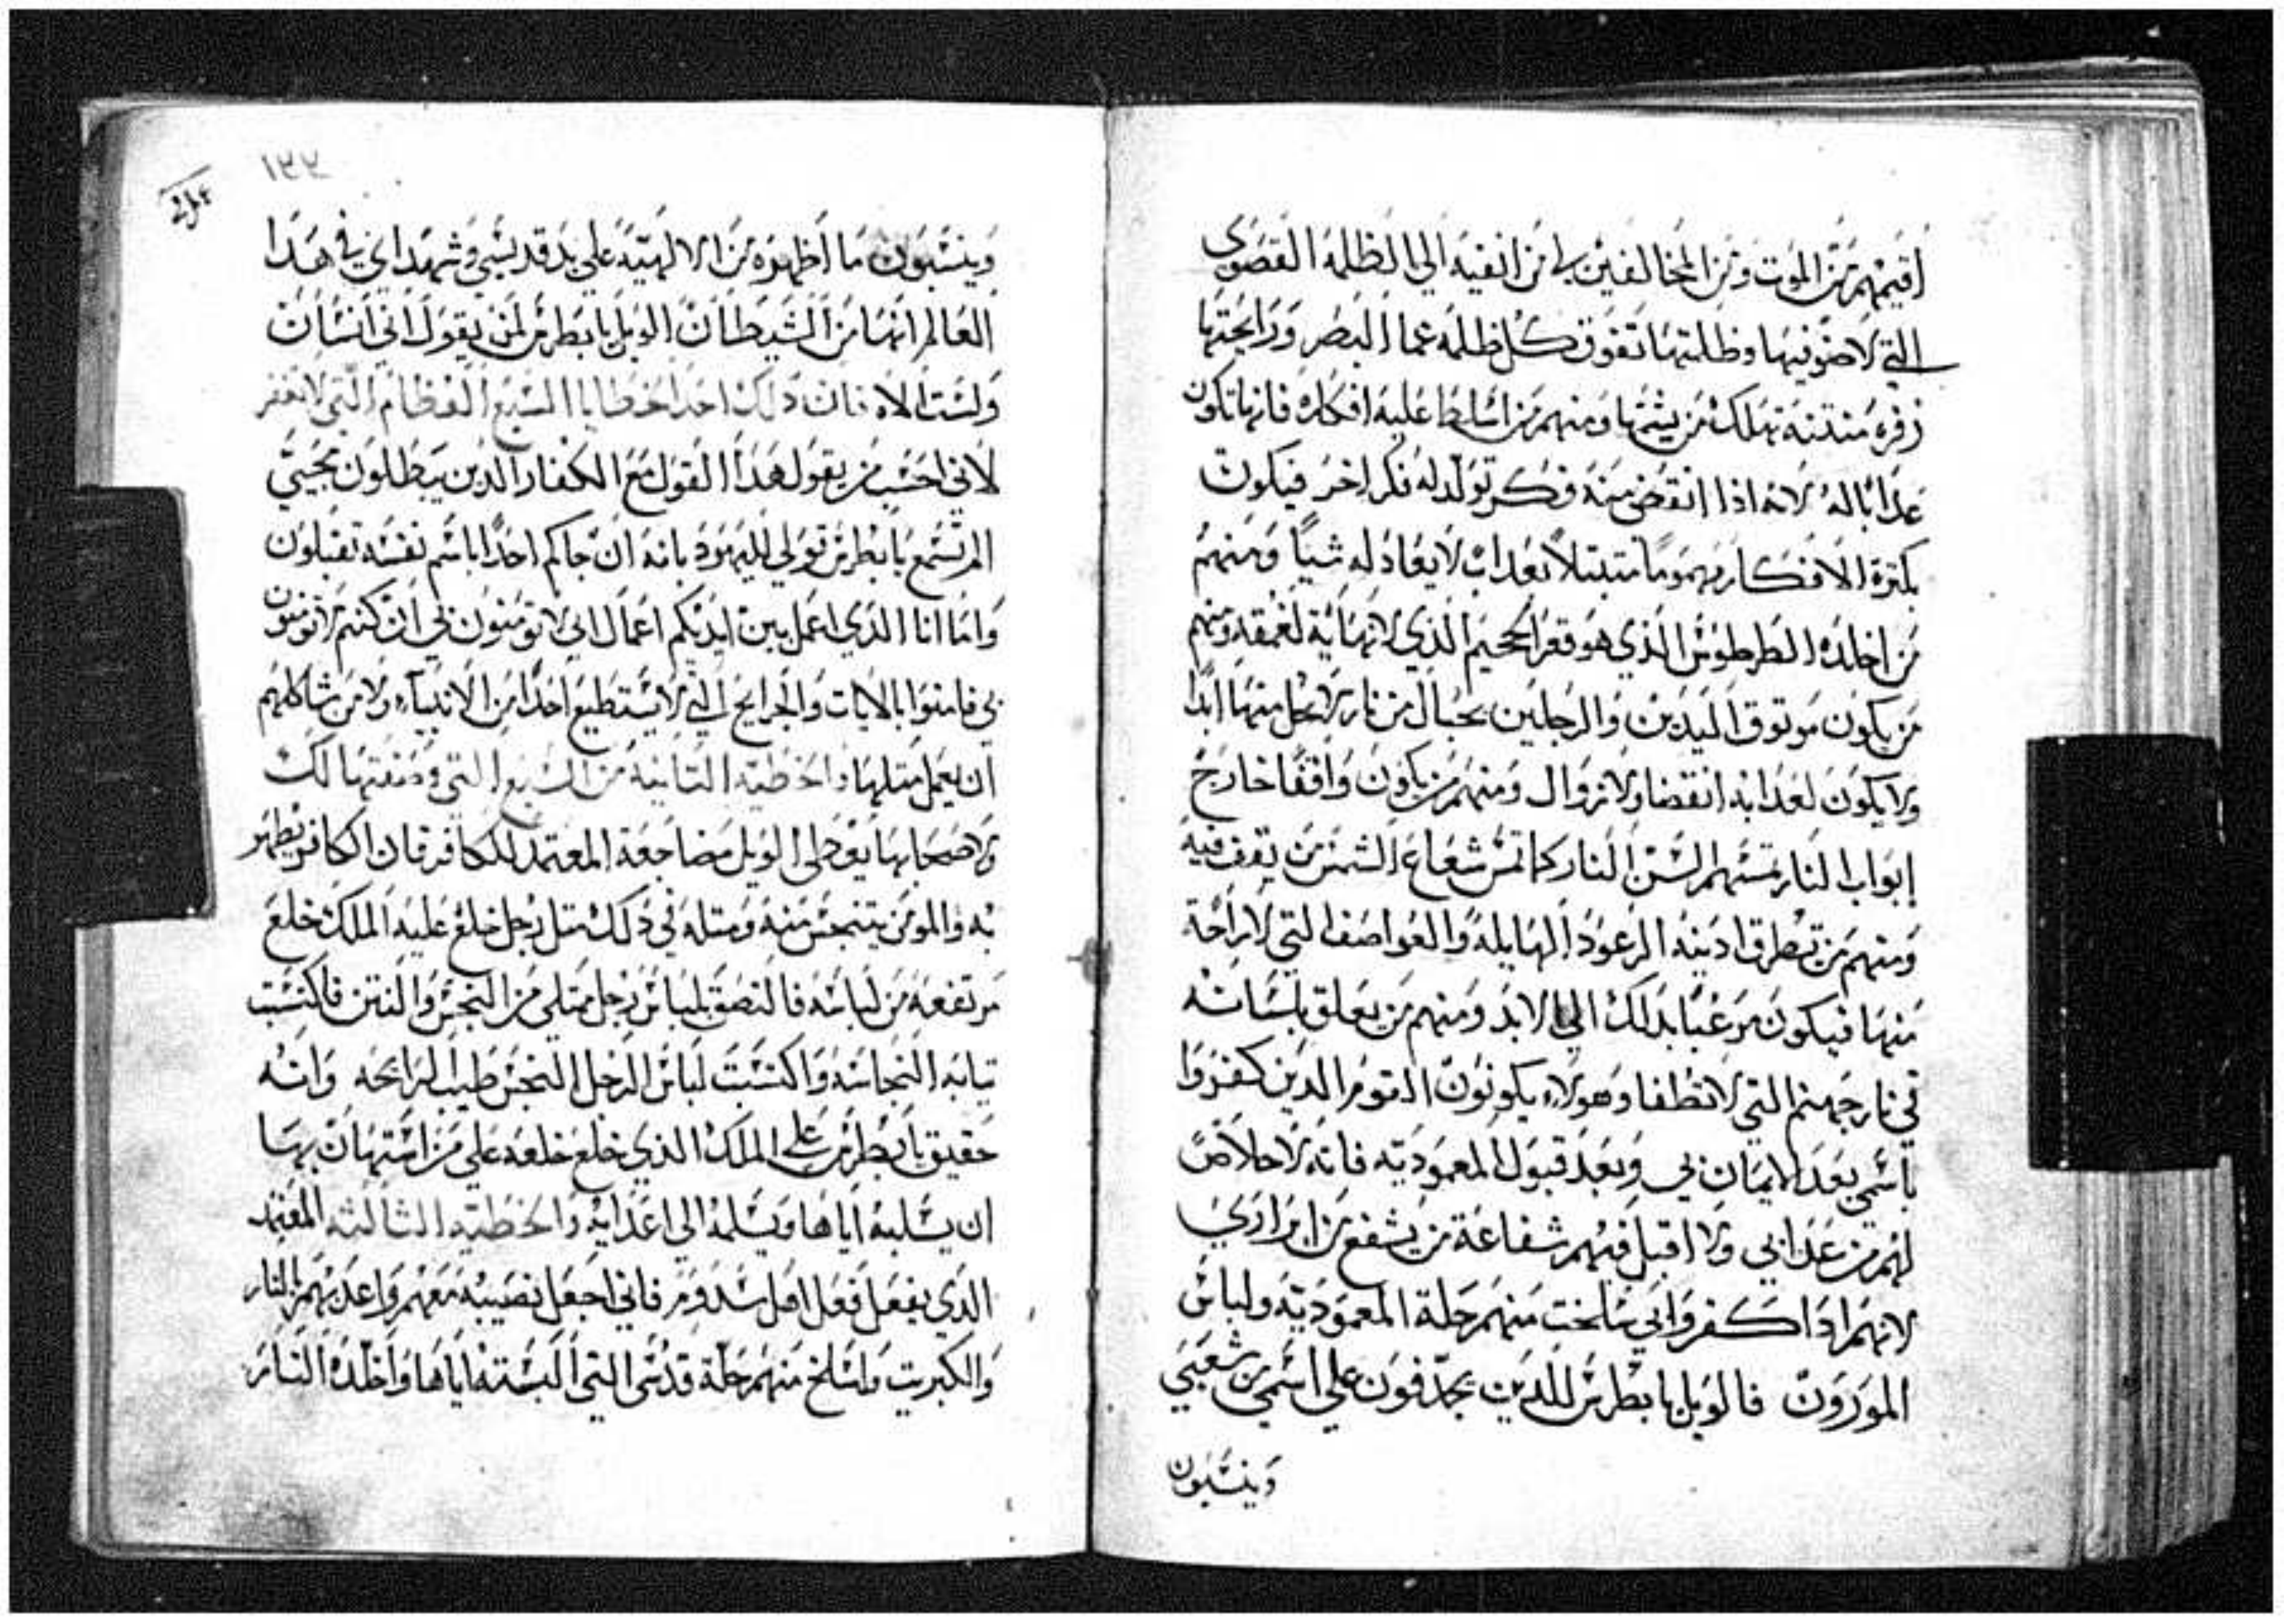 اقيمهم من الموت ومن المخالفين لي من انفيه الي الظلمه القصوي
التي لا ضو فيها وظلمتها تفوق كل ظلمه عما البصر ورايحتها
زفره منتنه تهلك من يشمها ومنهم من اسلط عليه افكاره فانها تكون
عدابا له لانه اذا انقضي منه فكر تولد له فكر اخر فيكون
بكثرة الافكار مهموما مبتلا بعداب لا يعادله شيا ومنهم
من اخلده الطرطوس الذي هو قعر الجحيم الذي لا نهاية لعمقه ومنهم
من يكون موتوق اليدين والرجلين بحبال من نار لا يحل منها ابدا
ولا يكون لعدابه انقضا ولا زوال ومنهم من يكون واقفا خارج
ابواب النار تمسهم السن النار كما تمس شعاع الشمس من يقف فيه
ومنهم من تطرق ادنيه الرعود الهايله والعواصف التي لا راحة
منها فيكون مرعبا بدلك الي الابد ومنهم من يعلق بلسانه
في نار جهنم التي لا تطفا وهولاء يكونون القوم الدين كفروا
باسمي بعد الايمان بي وبعد قبول المعموديه فانه لا خلاص
لهم من عدابي ولا اقبل فيهم شفاعة من يشفع من ابراري
لانهم ادا كفروا بي سلخت منهم حلة المعموديه ولباس
فالويل يا بطرس للدين يجدفون علي اسمي من شعبي
وينسبون
١٣٢
وينسبون ما اظهره من الالهيه علي يد قديسي وشهداي في هدا
العالم انها من الشيطان الويل يا بطرس لمن يقول اني انسان
ولست الاه فان دلك احد الخطايا السبع العظام التي لا تغفر
لاني احسب من يقول هدا القول مع الكفار الدين يبطلون مجيي
الم تسمع يا بطرس قولي لليهود بانه ان جاكم احدا باسم نفسه تقبلون
واما انا الذي اعمل بين ايديكم اعمال ابي لا تومنون بي ان كنتم لا تومنون
بي فامنوا بالايات والجرايح التي لا يستطيع احدا من الانبياء ولا من شاكلهم
ان يعمل مثلها والخطيه الثانيه من السبع التي وصفتها لك
ولاصحابها بعدي الويل مضاجعة المعتمد للكافر فان الكافر يطهر
به والمومن يتنجس منه ومثله في دلك مثل رجل خلع عليه الملك خلع
مرتفعه من لباسه فالتصق بلباس رجل ممتلي من النجس والنتن فاكتسبت
تيابه النجاسه واكتسبت لباس الرجل النجس طيب الرايحه وانه
حقيق يا بطرس علي الملك الذي خلع خلعه علي من استهان بها
ان يسلبه اياها ويسلمه الي اعدايه والخطيه الثالثه المعتمد
الدي يفعل فعل اهل سدوم فاني اجعل نصيبه معهم واعدبهم بالنار
والكبريت واسلخ منهم حلة قدسي التي البسته اياها واخلده النار